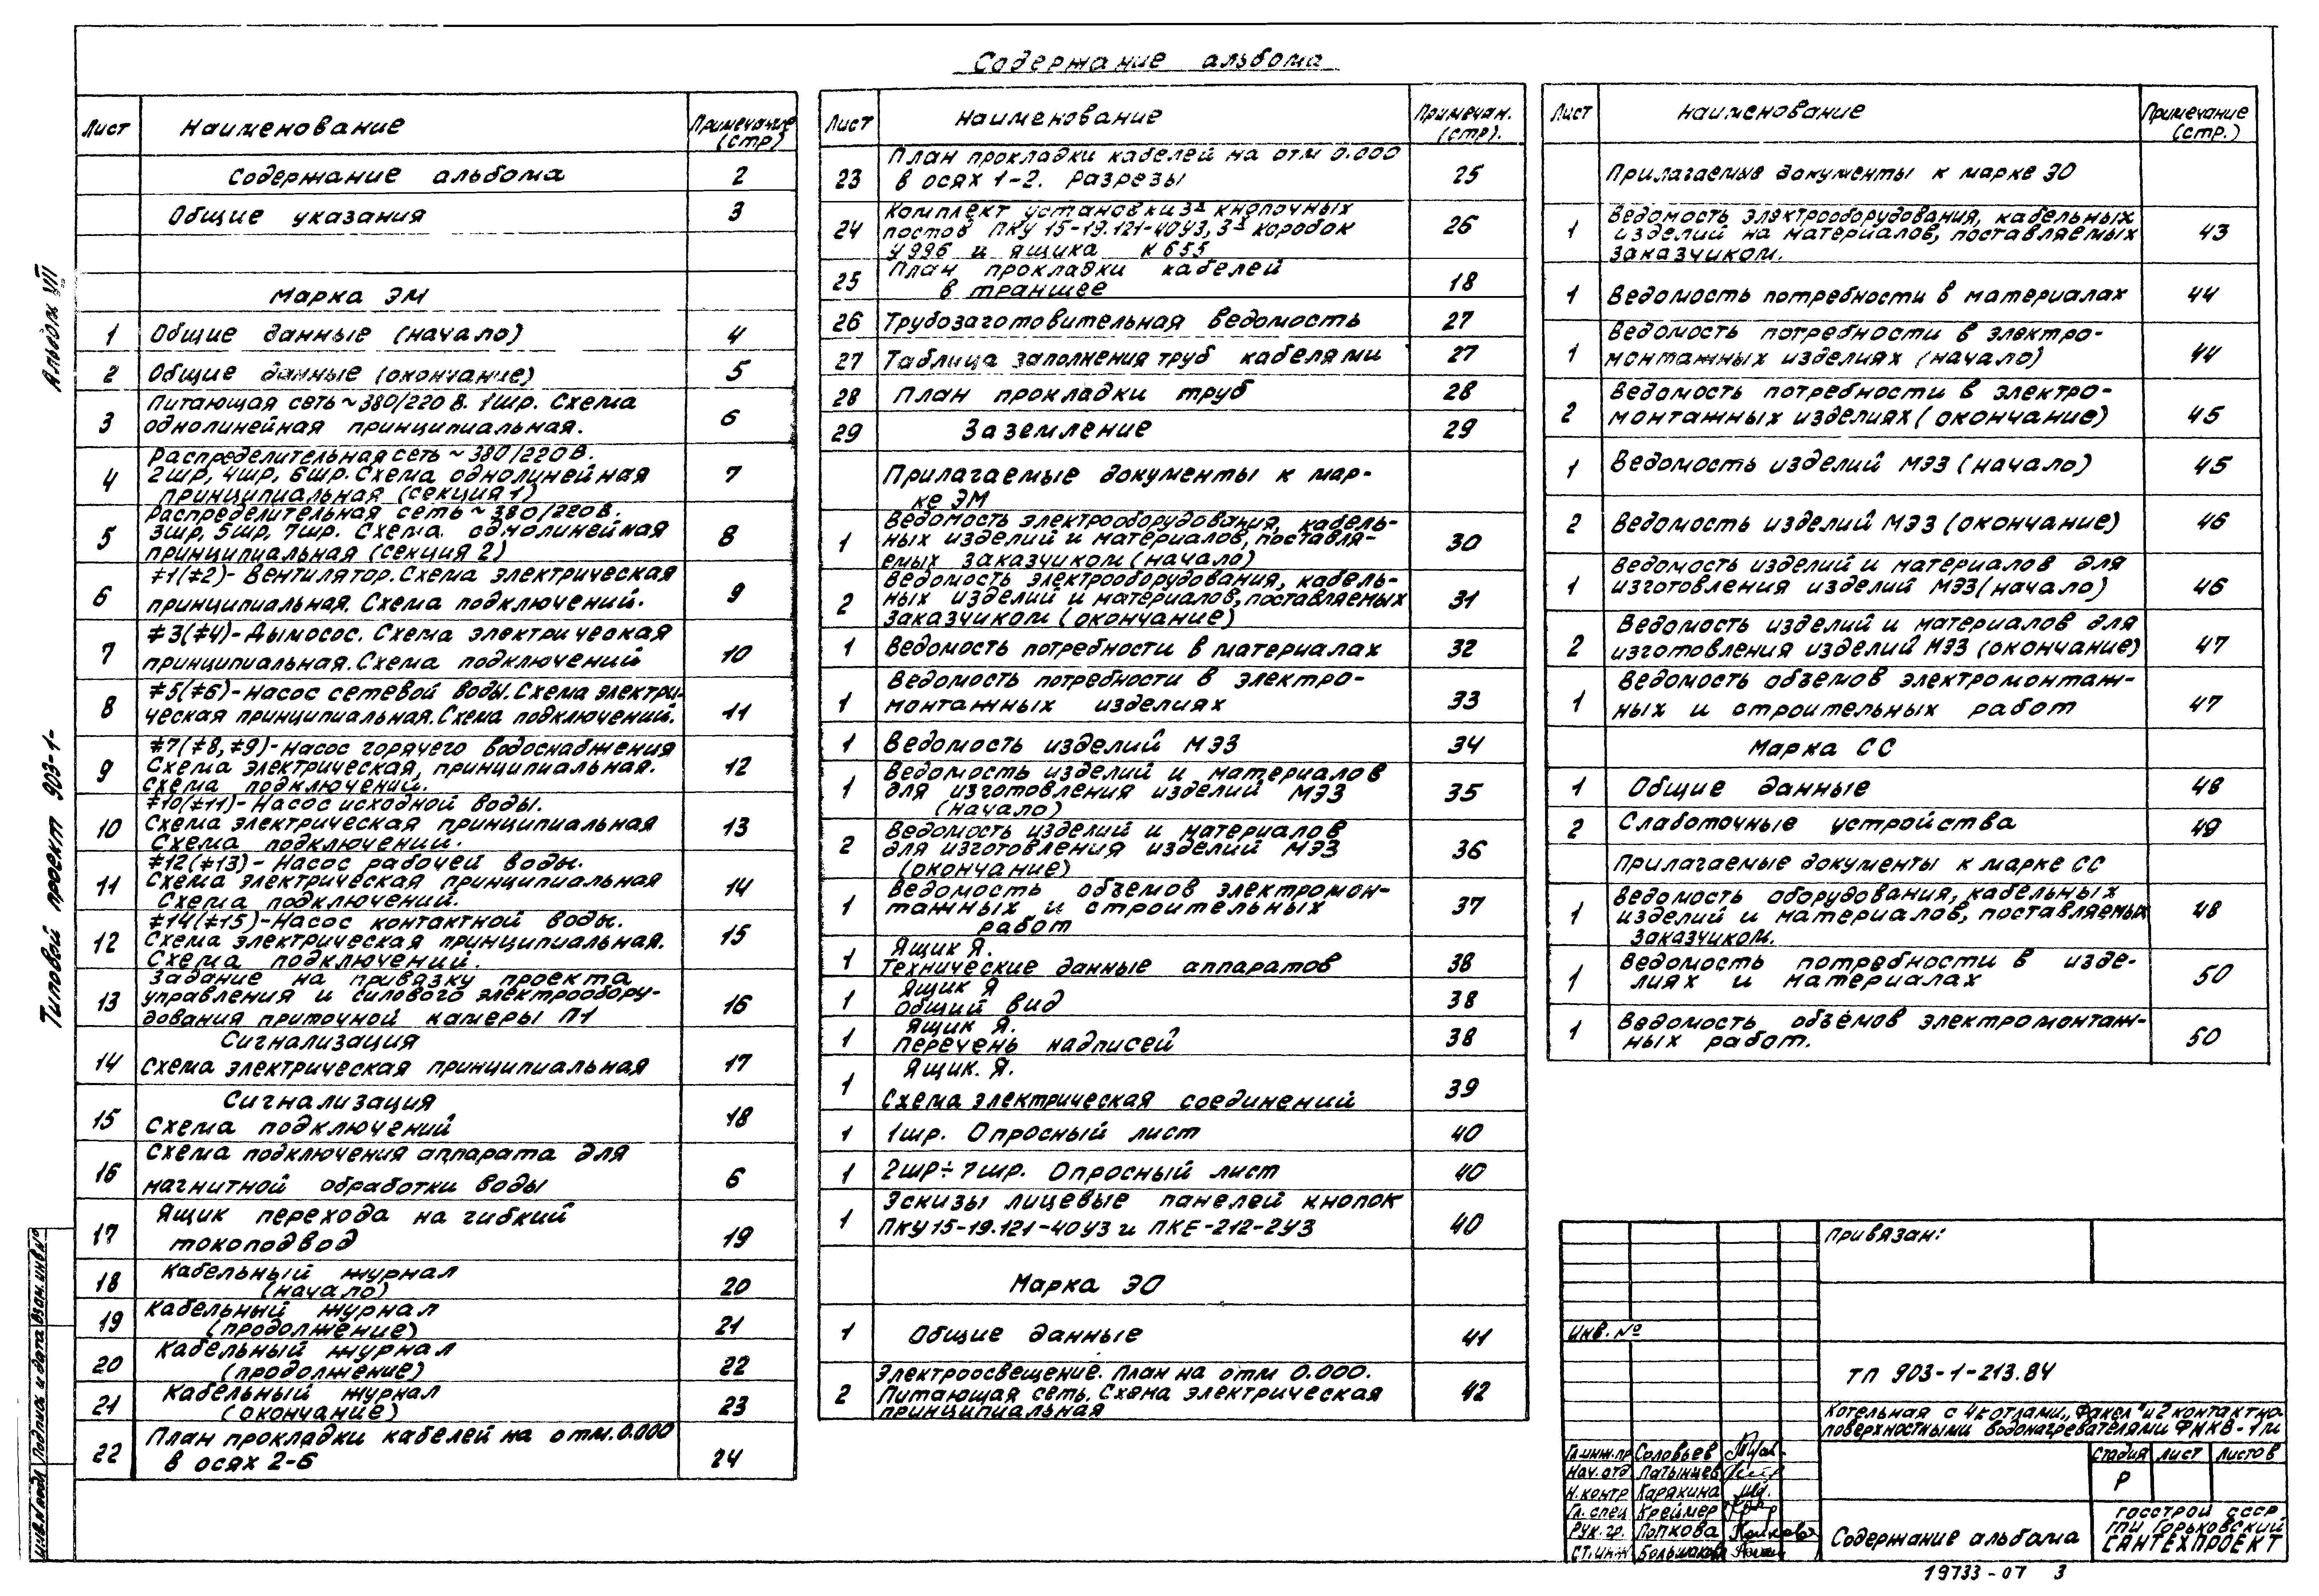 Содержание альбома
Лист Наименование Примечание (стр)
Содержание альбома 2
Общие указания 3
Марка ЭМ
1 Общие данные (начало) 4
2 Общие данные (окончание) 5
Питающая сеть ~380/220 В. 1шр. Схема
3 однолинейная принципиальная. 6
Распределительная сеть ~ 380/220В.
4 2шр, 4шр, 6шр. Схема однолинейная 7
принципиальная (секция 1)
Распределительная сеть ~ 380/220В.
5 3шр, 5шр, 7шр. Схема однолинейная 8
принципиальная (секция 2)
≠1(≠2)- Вентилятор. Схема электрическая
6 принципиальная. Схема подключений. 9
≠3(≠4)- Дымосос. Схема электрическая
7 принципиальная. Схема подключений 10
≠5(≠6)- Насос сетевой воды. Схема электри-
8 ческая принципиальная. Схема подключений. 11
≠7(≠8, ≠9)- Насос горячего водоснабжения
9 Схема электрическая, принципиальная. 12
Схема подключений.
≠10(≠11)- Насос исходной воды.
10 Схема электрическая принципиальная 13
Схема подключений.
≠12(≠13)- Насос рабочей воды.
11 Схема электрическая принципиальная 14
Схема подключений.
≠14(≠15)- Насос контактной воды.
12 Схема электрическая принципиальная. 15
Схема подключений.
Задание на привязку проекта
13 управления и силового электрообору- 16
дования приточной камеры П1
Сигнализация
14 Схема электрическая принципиальная 17
Сигнализация
15 Схема подключений 18
Схема подключения аппарата для
16 магнитной обработки воды 6
Ящик перехода на гибкий
17 токоподвод 19
Кабельный журнал
18 (начало) 20
Кабельный журнал
19 (продолжение) 21
Кабельный журнал
20 (продолжение) 22
Кабельный журнал
21 (окончание) 23
План прокладки кабелей на отм. 0.000
22 в осях 2-6 24
Лист Наименование Примечан. (стр).
План прокладки кабелей на отм 0.000
23 в осях 1-2. Разрезы 25
Комплект установки 3х кнопочных
24 постов ПКУ 15-19.121-40У3, 3х коробок 26
У996 и ящика К 655
План прокладки кабелей
25 в траншее 18
26 Трубозаготовительная ведомость 27
27 Таблица заполнения труб кабелями 27
28 План прокладки труб 28
29 Заземление 29
Прилагаемые документы к мар-
ке ЭМ
Ведомость электрооборудования, кабель-
1 ных изделий и материалов, поставля- 30
емых заказчиком (начало)
Ведомость электрооборудования, кабель-
2 ных изделий и материалов, поставляемых 31
заказчиком (окончание)
1 Ведомость потребности в материалах 32
Ведомость потребности в электро-
1 монтажных изделиях 33
1 Ведомость изделий МЭЗ 34
Ведомость изделий и материалов
1 для изготовления изделий МЭЗ 35
(начало)
Ведомость изделий и материалов
2 для изготовления изделий МЭЗ 36
(окончание)
Ведомость объемов электромон-
1 тажных и строительных 37
работ
Ящик Я.
1 Технические данные аппаратов 38
Ящик Я
1 Общий вид 38
Ящик Я.
1 Перечень надписей 38
Ящик. Я.
1 Схема электрическая соединений 39
1 1шр. Опросный лист 40
1 2шр÷7шр. Опросный лист 40
Эскизы лицевые панелей кнопок
1 ПКУ15-19.121-40У3 и ПКЕ-212-2У3 40
Марка ЭО
1 Общие данные 41
Электроосвещение. План на отм 0.000.
2 Питающая сеть. Схема электрическая 42
принципиальная
Лист Наименование Примечание (стр.)
Прилагаемые документы к марке ЭО
Ведомость электрооборудования, кабельных
1 изделий на материалов, поставляемых 43
заказчиком.
1 Ведомость потребности в материалах 44
Ведомость потребности в электро-
1 монтажных изделиях (начало) 44
Ведомость потребности в электро-
2 монтажных изделиях (окончание) 45
1 Ведомость изделий МЭЗ (начало) 45
2 Ведомость изделий МЭЗ (окончание) 46
Ведомость изделий и материалов для
1 изготовления изделий МЭЗ (начало) 46
Ведомость изделий и материалов для
2 изготовления изделий МЭЗ (окончание) 47
Ведомость объемов электромонтаж-
1 ных и строительных работ 47
Марка СС
1 Общие данные 48
2 Слаботочные устройства 49
Прилагаемые документы к марке СС
Ведомость оборудования, кабельных
1 изделий и материалов, поставляемых 48
заказчиком.
Ведомость потребности в изде-
1 лиях и материалах 50
Ведомость объемов электромонтаж-
1 ных работ. 50
Привязан:
Инв. №
ТП 903-1-213.84
Котельная с 4 котлами „Факел" и 2 контактно-
поверхностными водонагревателями ФНКВ-1м
Гл.инж.пр Соловьев
Нач.отд Латынцев
Н.контр Карякина
Гл.спец Креймер
Рук.гр. Попкова
Ст.инж Большакова
Стадия Лист Листов
Р
Содержание альбома
ГОССТРОЙ СССР
ГПИ Горьковский
САНТЕХПРОЕКТ
19733-07 3
Типовой проект 903-1-
Альбом VII
Инв.№ подл Подпись и дата Взам.инв.№